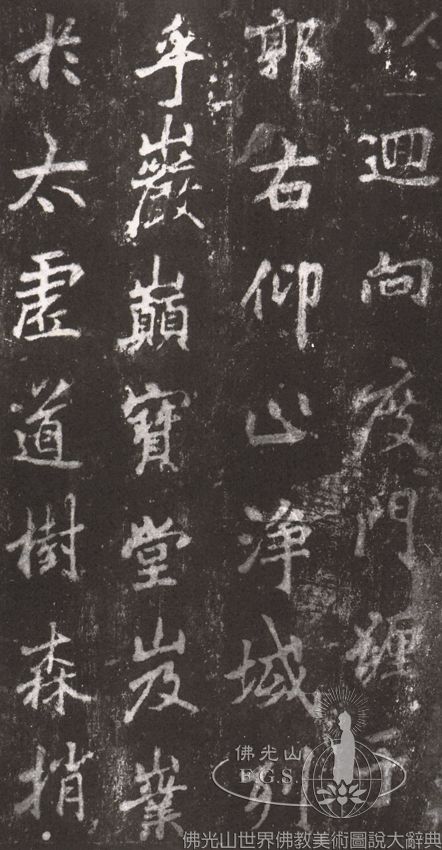 以迴向度門
郭右仰止淨域列
乎巖巔寶堂岌業
於太虛道樹森梢
佛光山
F.G.S.
佛光山世界佛教美術圖說大辭典